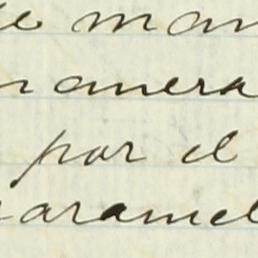 de man
manera
por el
caramel